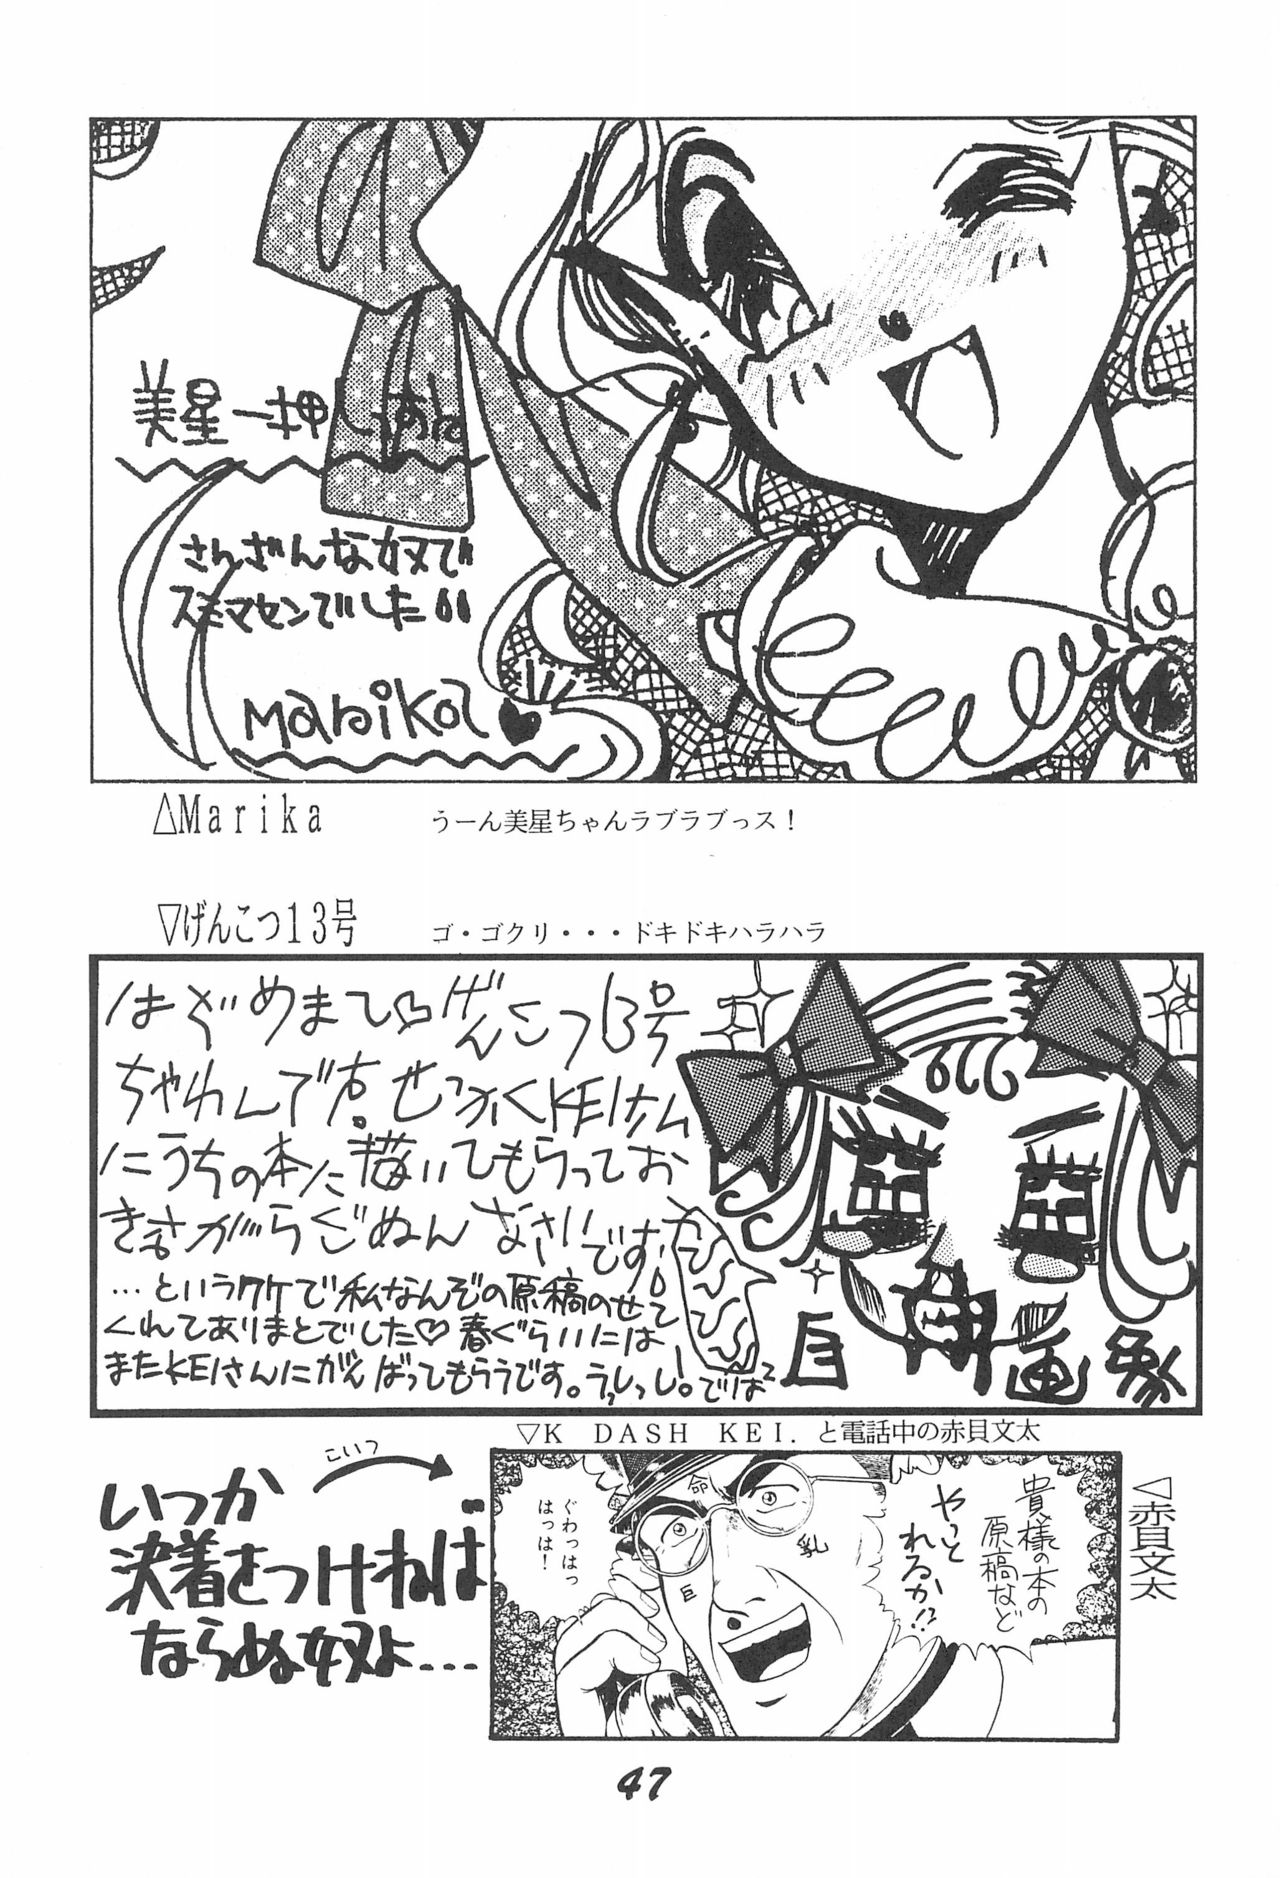 美星一押しまんねん
さんざんな奴で
スミマセンでした！！
Marika♥
△Marika
うーん美星ちゃんラブラブっス！
▽げんこつ13号
ゴ・ゴクリ・・・ドキドキハラハラ
はぢめまて♡げんこつ13号
ちゃわんです。せっかくKEIさん
にうちの本に描いてもらってお
きながらごめんなさいです!
…というワケで私なんぞの原稿のせて
くれてありまとでした♡春ぐらいには
またKEIさんにがんばってもらうです。うっしっし!では
自画像
▽K DASH KEI．と電話中の赤貝文太
こいつ
いつか
決着をつけねば
ならぬ奴よ...
貴様の本の
原稿など
やってられるか!?
ぐわっはっ
はっは！
命
乳
巨
◁赤貝文太
47